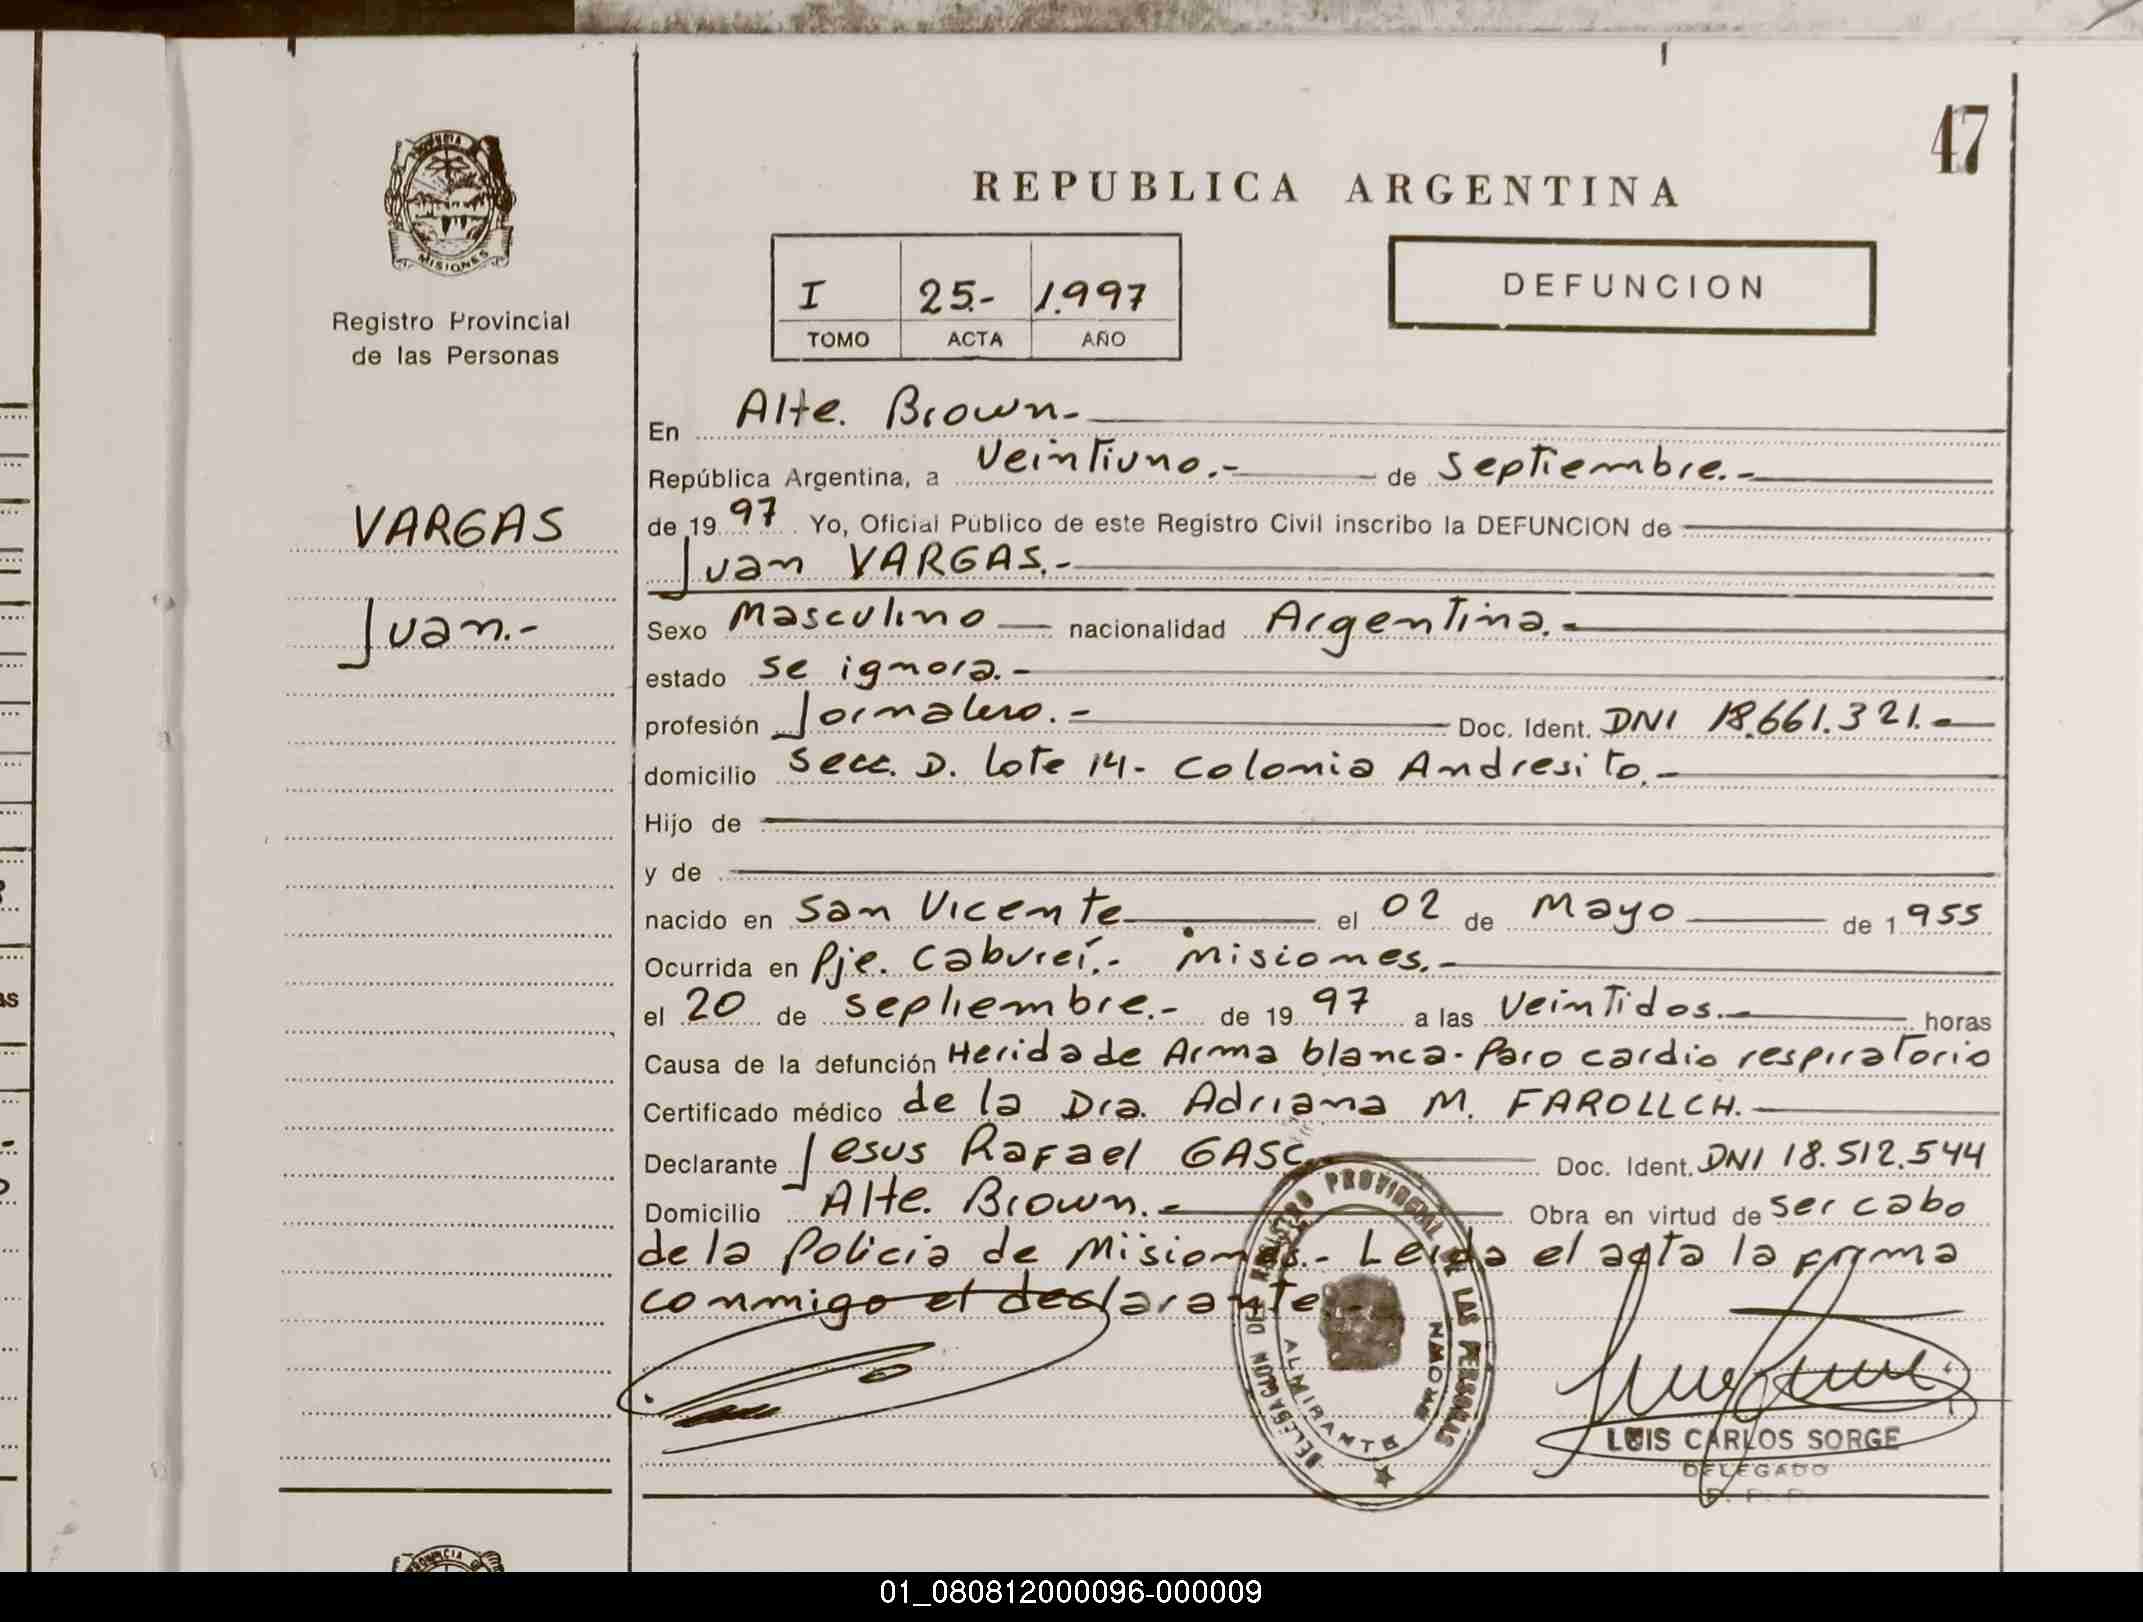 47
REPUBLICA ARGENTINA
MISIONES
Registro Provincial
de las Personas
I 25.- 1.997
TOMO ACTA AÑO
DEFUNCION
VARGAS
Juan.-
En Alte. Brown.-
República Argentina, a Veintiuno.- de Septiembre.-
de 19 97 Yo, Oficial Público de este Registro Civil inscribo la DEFUNCION de
Juan VARGAS.-
Sexo Masculino nacionalidad Argentina.-
estado se ignora.-
profesión Jornalero.- Doc. Ident. DNI 18.661.321.-
domicilio Secc. D. Lote 14- Colonia Andresito.-
Hijo de
y de
nacido en San Vicente el 02 de Mayo de 1 955
Ocurrida en Pje. Cabureí.- Misiones.-
el 20 de septiembre.- de 19 97 a las Veintidos.- horas
Causa de la defunción Herida de Arma blanca- Paro cardio respiratorio
Certificado médico de la Dra. Adriana M. FAROLLCH.-
Declarante Jesus Rafael GASC Doc. Ident. DNI 18.512.544
Domicilio Alte. Brown.- Obra en virtud de ser cabo
de la Policia de Misiones.- Leida el acta la firma
conmigo el declarante
DELEGACION DEL REGISTRO PROVINCIAL DE LAS PERSONAS
ALMIRANTE BROWN
LUIS CARLOS SORGE
DELEGADO
01_080812000096-000009